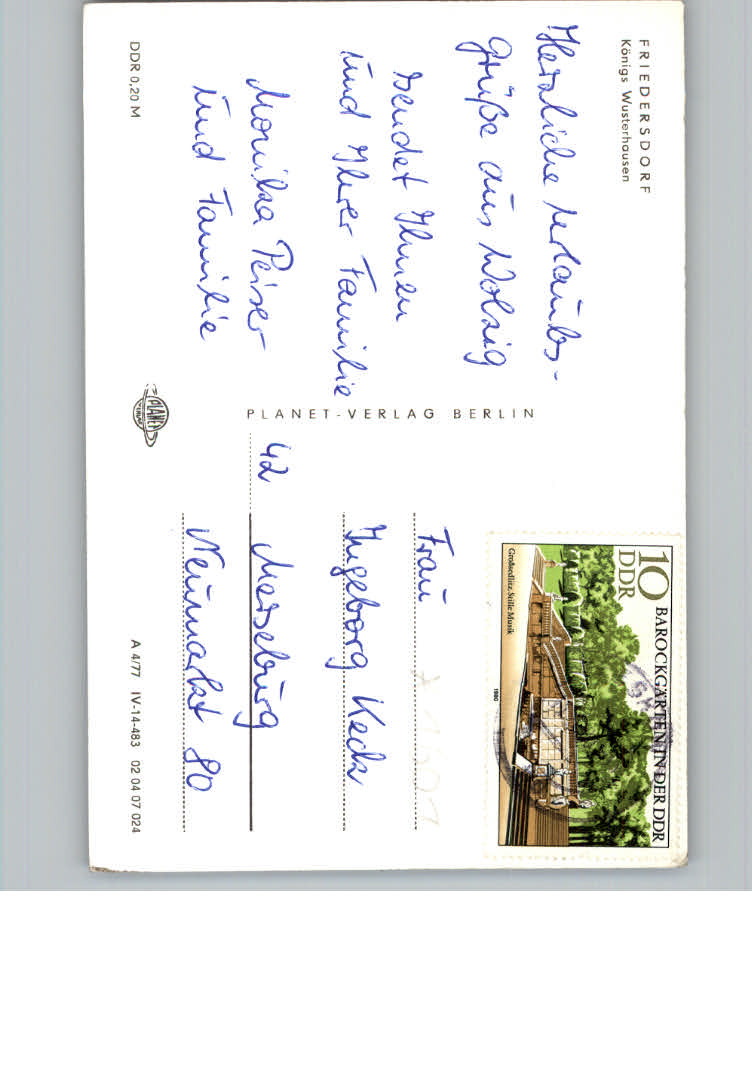 FRIEDERSDORF
Königs Wusterhausen
Herzliche Urlaubs-
grüße aus Wolzig
sendet Ihnen
und Ihrer Familie
Monika Peiser
und Familie
DDR 0,20 M
PLANET-VERLAG BERLIN
PLANET
VERLAG
10
DDR
BAROCKGÄRTEN IN DER DDR
Großsedlitz, Stille Musik
1980
Frau
Ingeborg Keck
42 Merseburg
Neumarkt 80
A 4/77 IV-14-483 02 04 07 024